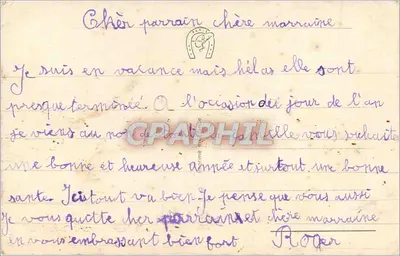 Chèr parrain chère marraine
Je suis en vacance mais hélas elle sont
presque terminée. A l'occasion dei jour de l'an
je viens au nom de famille vous souhaite
une bonne et heureuse année et surtout une bonne
sante. Ici tout va bien Je pense que vous aussi
Je vous quitte cher parrains et chère marraine
en vous embrassant bien fort Roger
CPAPHIL.com